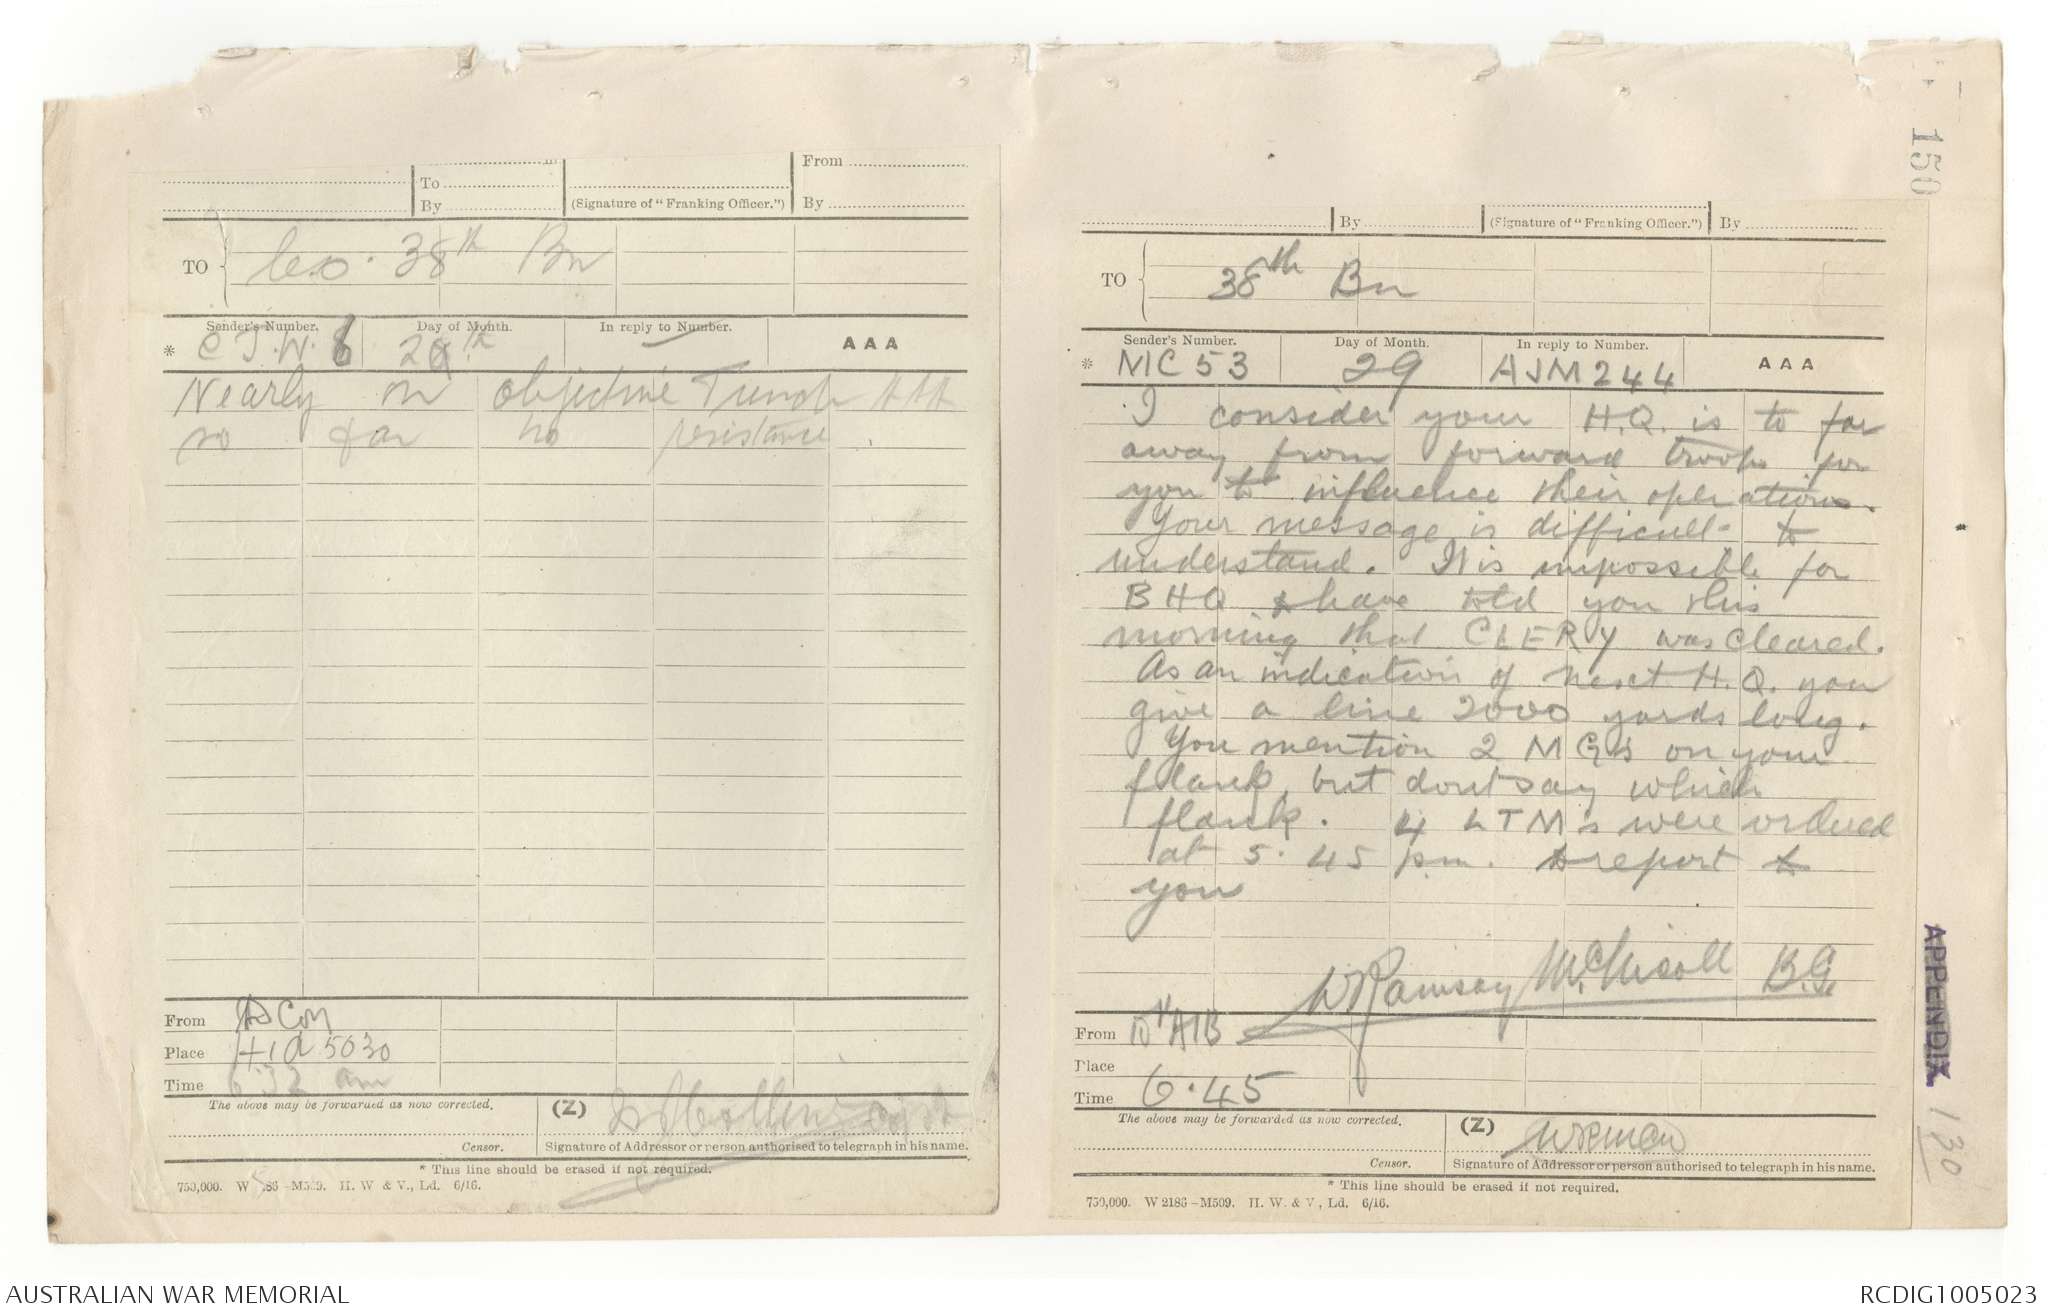 To
By
(Signature of "Franking Officer.")
From
By
TO
C.O. 38th Bn
Sender's Number.
Day of Month.
In reply to Number.
AAA
*
Nearly on objective Trench AAA
so far no resistance.
From
D Coy
Place
Time
6.32 am
The above may be forwarded as now corrected.
(Z)
Censor.
Signature of Addressor or person authorised to telegraph in his name.
* This line should be erased if not required.
750,000. W 2186—M509. H. W & V., Ld. 6/16.
150
By
(Signature of "Franking Officer.")
By
TO
38th Bn
Sender's Number.
Day of Month.
In reply to Number.
AAA
* MC 53 29 AJM 244
I consider your H.Q. is to far
away from forward troops for
you to influence their operations.
Your message is difficult to
understand. It is impossible for
BHQ to have told you this
morning that CLERY was cleared.
As an indication of next H.Q. you
give a line 2000 yards long.
You mention 2 MGs on your
flank, but dont say which
flank. 4 LTMs were ordered
at 5.45 pm. to report to
you
W Ramsay McNicoll B.G.
From
10th AIB
Place
Time
6.45
The above may be forwarded as now corrected.
(Z)
Censor.
Signature of Addressor or person authorised to telegraph in his name.
* This line should be erased if not required.
750,000. W 2186—M509. H. W. & V., Ld. 6/16.
APPENDIX 130
AUSTRALIAN WAR MEMORIAL
RCDIG1005023